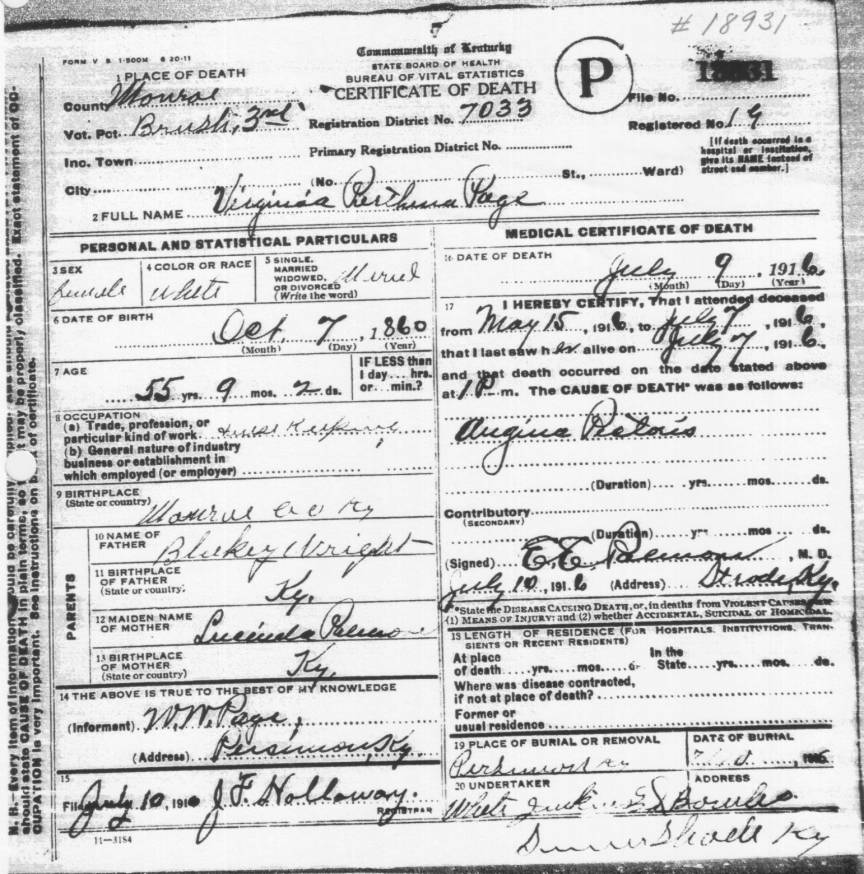 # 18931
FORM V. S. 1-500M 6 20-11
Commonwealth of Kentucky
STATE BOARD OF HEALTH
BUREAU OF VITAL STATISTICS
CERTIFICATE OF DEATH
P
18931
File No.
Registered No. 19
[If death occurred in a hospital or institution, give its NAME instead of street and number.]
1 PLACE OF DEATH
County Monroe
Vot. Pct. Brush, 3rd
Registration District No. 7033
Inc. Town
Primary Registration District No.
City (No. St., Ward)
2 FULL NAME Virginia Page
PERSONAL AND STATISTICAL PARTICULARS
3 SEX
female
4 COLOR OR RACE
White
5 SINGLE,
MARRIED
WIDOWED,
OR DIVORCED
(Write the word)
6 DATE OF BIRTH
Oct. 7, 1860
(Month) (Day) (Year)
7 AGE
55 yrs. 9 mos. 2 ds.
IF LESS than
1 day... hrs.
or... min.?
8 OCCUPATION
(a) Trade, profession, or
particular kind of work
(b) General nature of industry
business or establishment in
which employed (or employer)
9 BIRTHPLACE
(State or country)
Monroe Co Ky
PARENTS
10 NAME OF
FATHER
Blakey Wright
11 BIRTHPLACE
OF FATHER
(State or country)
Ky.
12 MAIDEN NAME
OF MOTHER
Lucinda
13 BIRTHPLACE
OF MOTHER
(State or country)
Ky.
14 THE ABOVE IS TRUE TO THE BEST OF MY KNOWLEDGE
(Informant) W. W. Page,
(Address) Persimon, Ky.
15
Filed July 10, 1916 J. F. Holloway.
REGISTRAR
11-3184
MEDICAL CERTIFICATE OF DEATH
16 DATE OF DEATH
July 9, 1916
(Month) (Day) (Year)
17 I HEREBY CERTIFY, That I attended deceased
from May 15, 1916, to July 7, 1916,
that I last saw her alive on July 7, 1916,
and that death occurred on the date stated above
at 1 P. m. The CAUSE OF DEATH* was as follows:
Angina
(Duration) yrs. mos. ds.
Contributory
(SECONDARY)
(Duration) yrs. mos. ds.
(Signed) E. E. M. D.
July 10, 1916 (Address) Strode, Ky.
*State the DISEASE CAUSING DEATH, or, in deaths from VIOLENT CAUSES state
(1) MEANS OF INJURY: and (2) whether ACCIDENTAL, SUICIDAL or HOMICIDAL
18 LENGTH OF RESIDENCE (FOR HOSPITALS, INSTITUTIONS, TRAN-
SIENTS OR RECENT RESIDENTS)
At place
of death yrs. mos.
In the
State yrs. mos. ds.
Where was disease contracted,
if not at place of death?
Former or
usual residence
19 PLACE OF BURIAL OR REMOVAL
DATE OF BURIAL
20 UNDERTAKER
ADDRESS
Ky